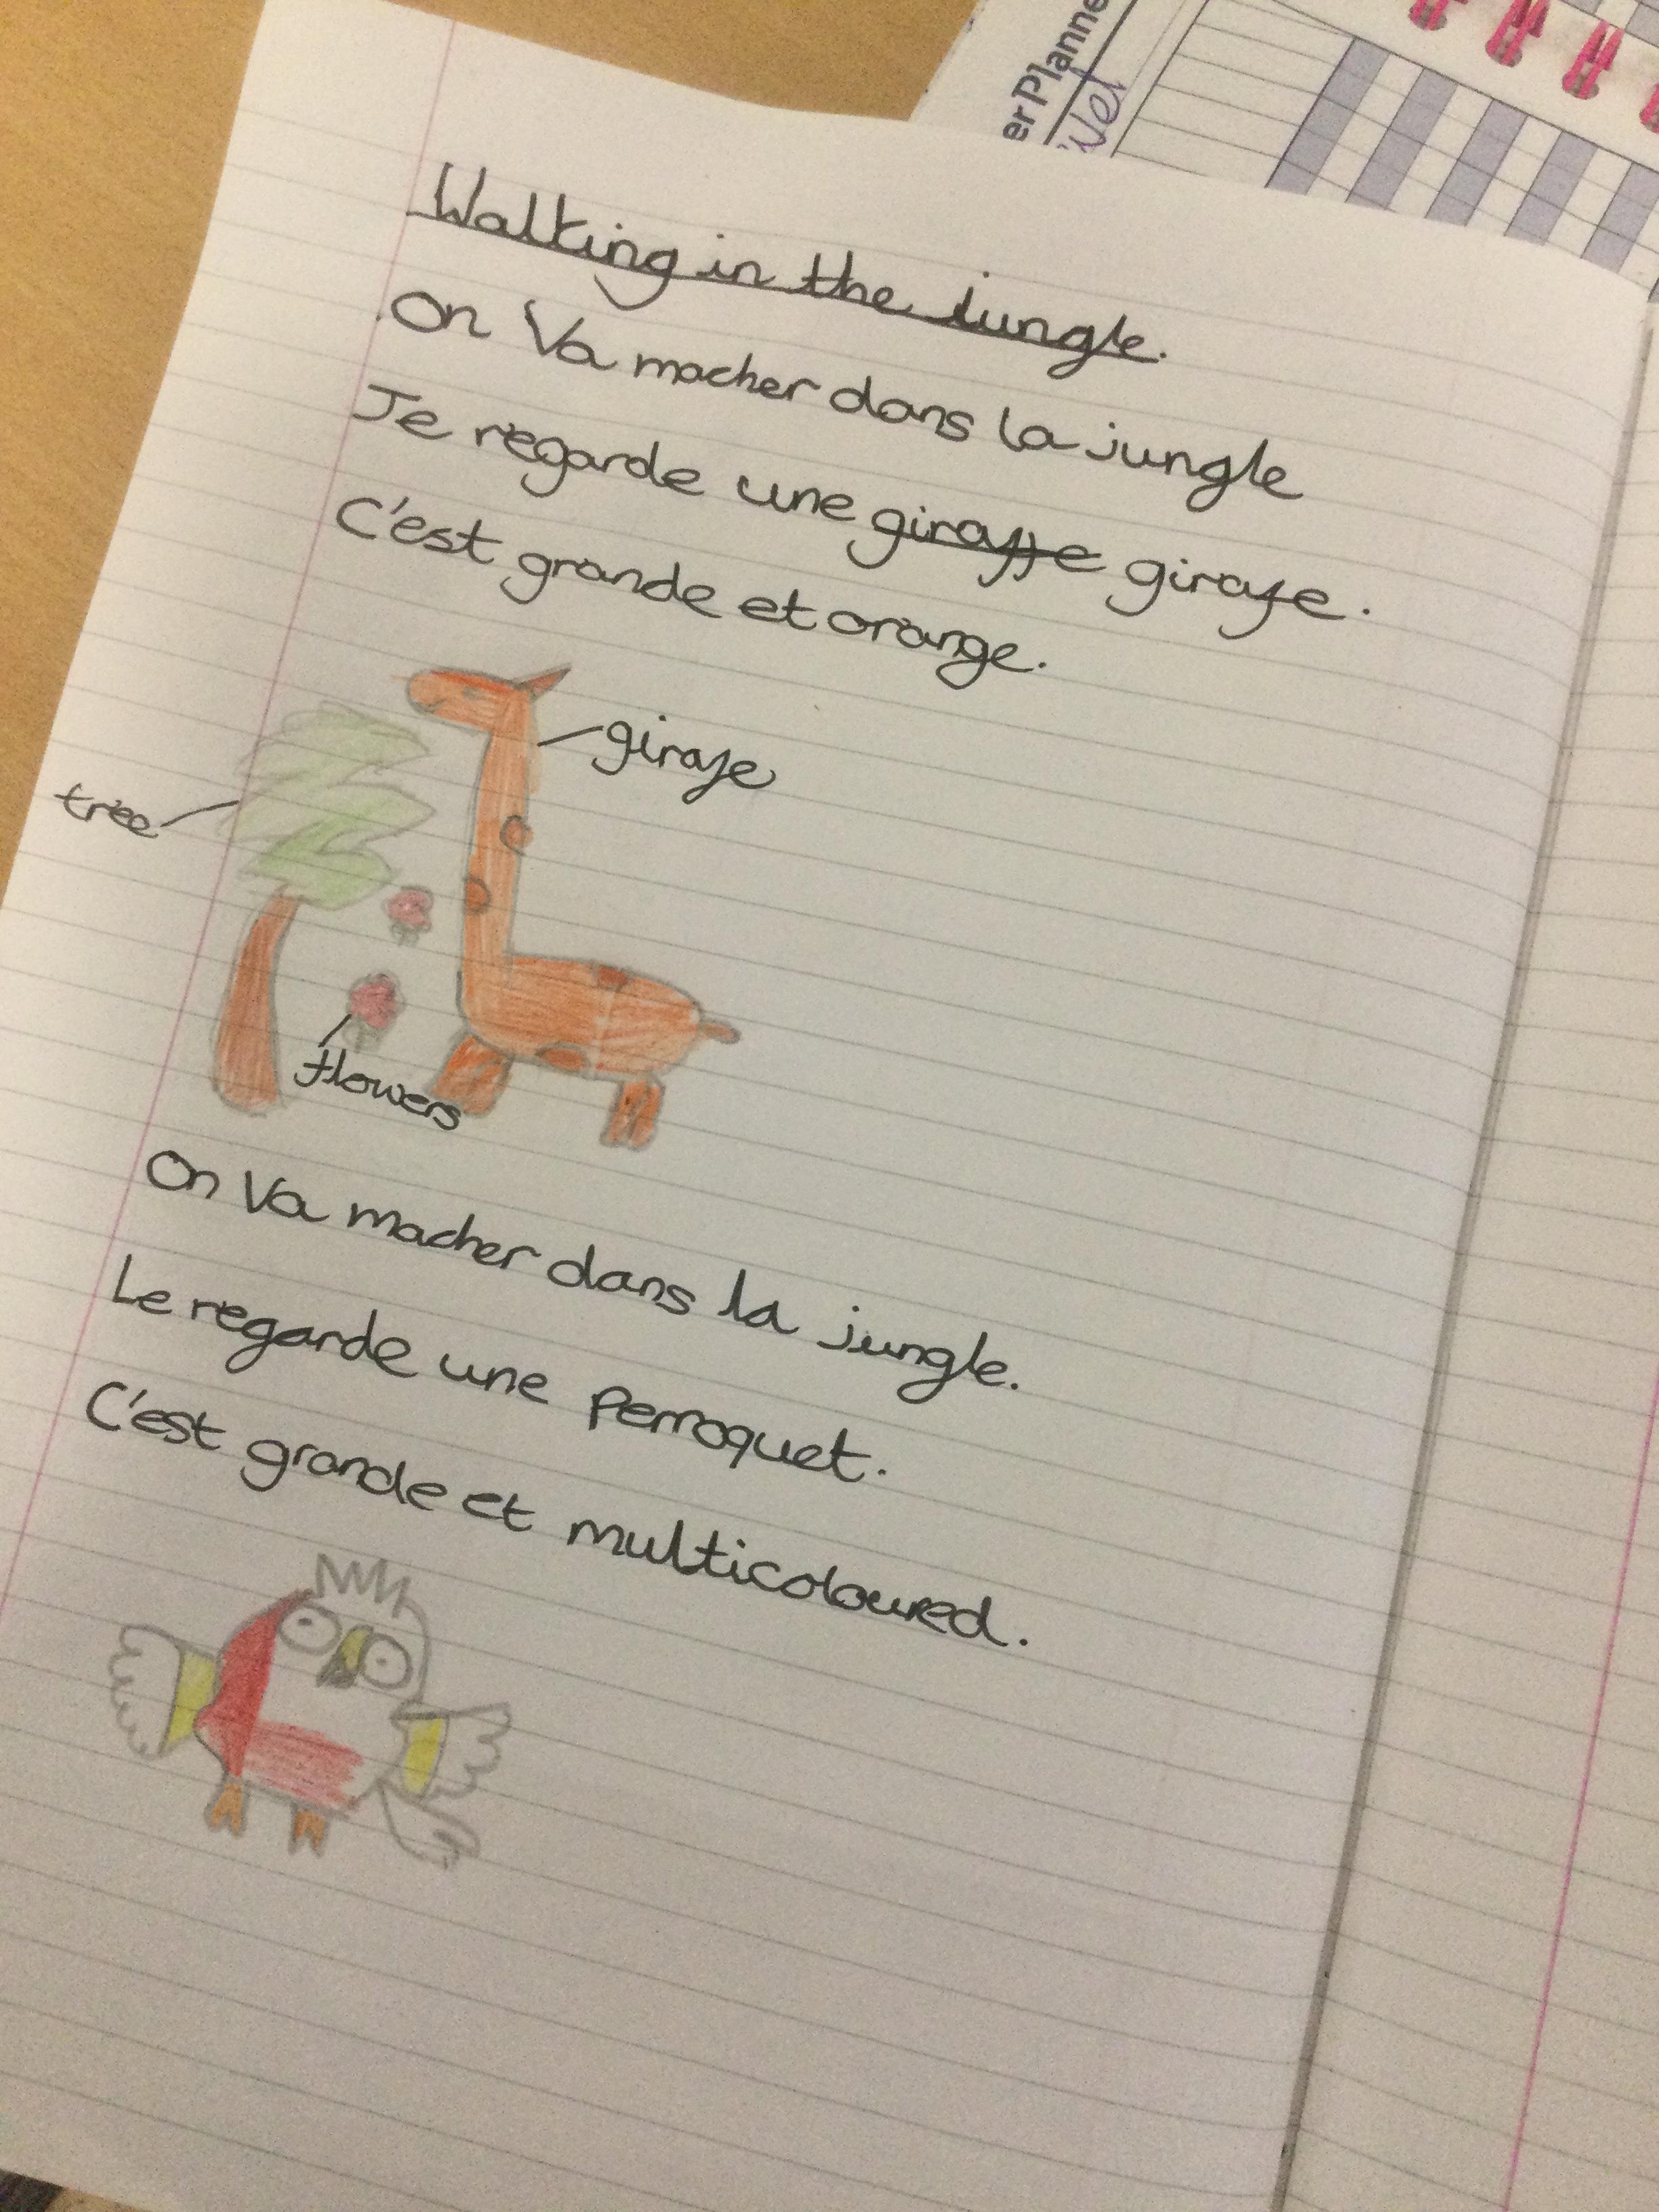 er Planne
Walking in the Jungle.
On Va macher dans la jungle
Je regarde une giraffe girafe.
C'est grande et orange.
girafe
tree
flowers
On Va macher dans la jungle.
Le regarde une perroquet.
C'est grande et multicoloured.